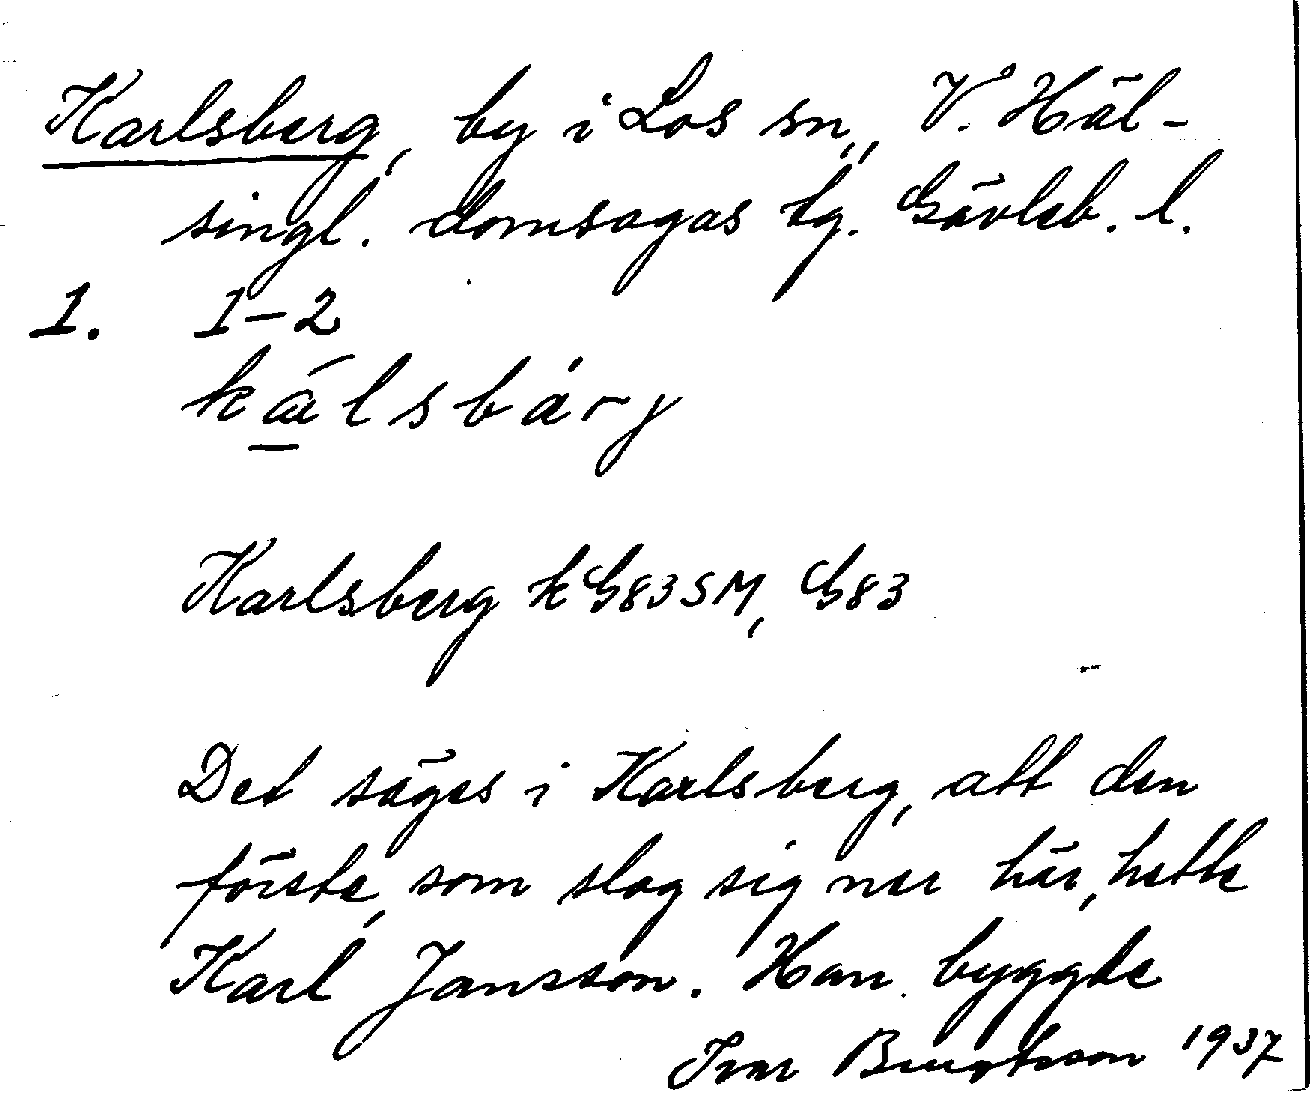 Karlsberg, by i Los sn., V. Häl-
singl. domsagas tg. Gävleb. l.
1. 1-2
kǽlsbárj
Karlsberg kG83SM, G83
Det säges i Karlsberg, att den
förste, som slog sig ner här, hette
Karl Jansson. Han byggde
Ivar Bengtsson 1937